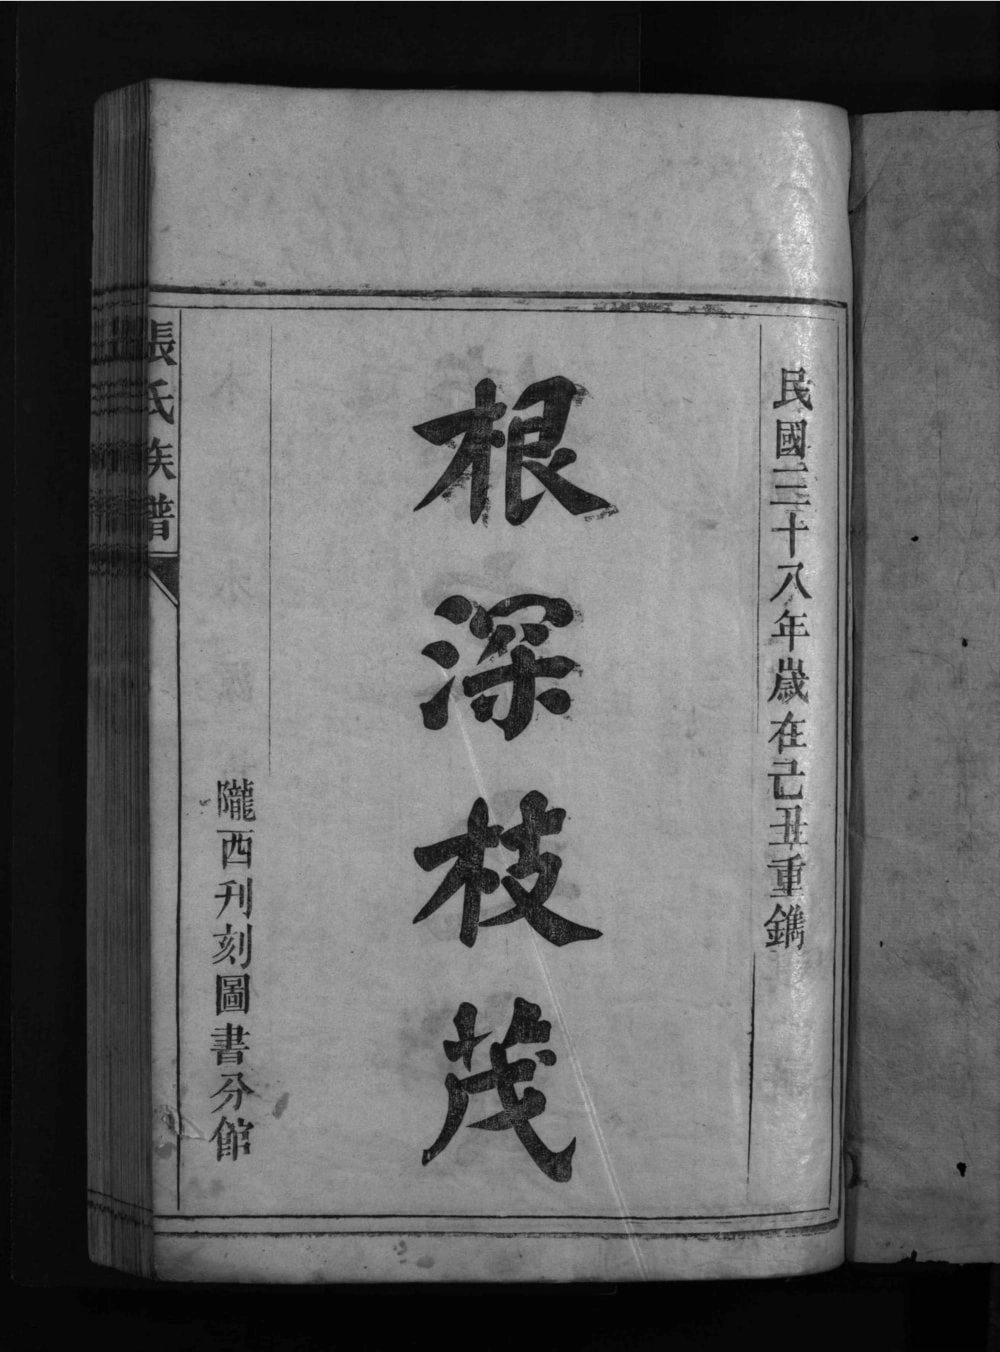 民國三十八年歲在己丑重鐫
根深枝茂
隴西刋刻圖書分館
張氏族譜